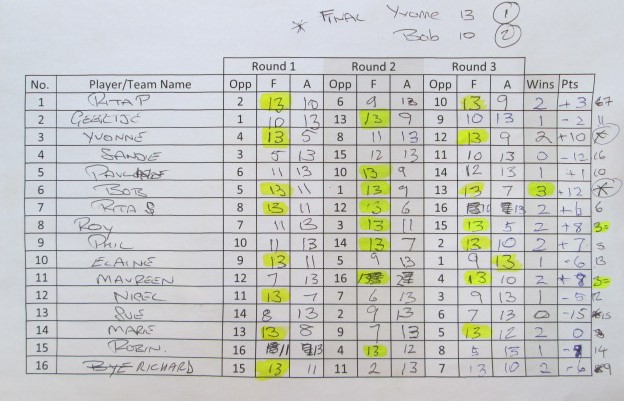 * FINAL Yvonne 13 1
Bob 10 2
Round 1 Round 2 Round 3
No. Player/Team Name Opp F A Opp F A Opp F A Wins Pts
1 RITA P 2 13 10 6 9 13 10 13 9 2 +3 7
2 1 10 13 13 13 9 9 10 13 1 -2 11
3 YVONNE 4 13 5 8 11 13 12 13 9 2 +10 *
4 SANDIE 3 5 13 15 12 13 11 10 13 0 -12 16
5 6 11 13 10 13 9 14 12 13 1 +1 10
6 BOB 5 13 11 1 13 9 13 13 7 3 +12 *
7 RITA S 8 13 11 12 13 6 16 10 13 2 +6 6
8 ROY 7 11 13 3 13 11 15 13 5 2 +8 3=
9 PHIL 10 11 13 14 13 7 2 13 10 2 +7 5
10 ELAINE 9 13 11 5 9 13 1 9 13 1 -6 13
11 MAUREEN 12 7 13 16 13 4 13 10 2 +8 3=
12 NIGEL 11 13 7 7 6 13 3 9 13 1 -5 12
13 SUE 14 8 13 2 9 13 6 7 13 0 -15 15
14 MARIE 13 13 8 9 7 13 5 13 12 2 0 8
15 ROBIN. 16 11 13 4 13 12 8 5 13 1 -9 14
16 BYE RICHARD 15 13 11 11 2 13 7 13 10 2 -6 9